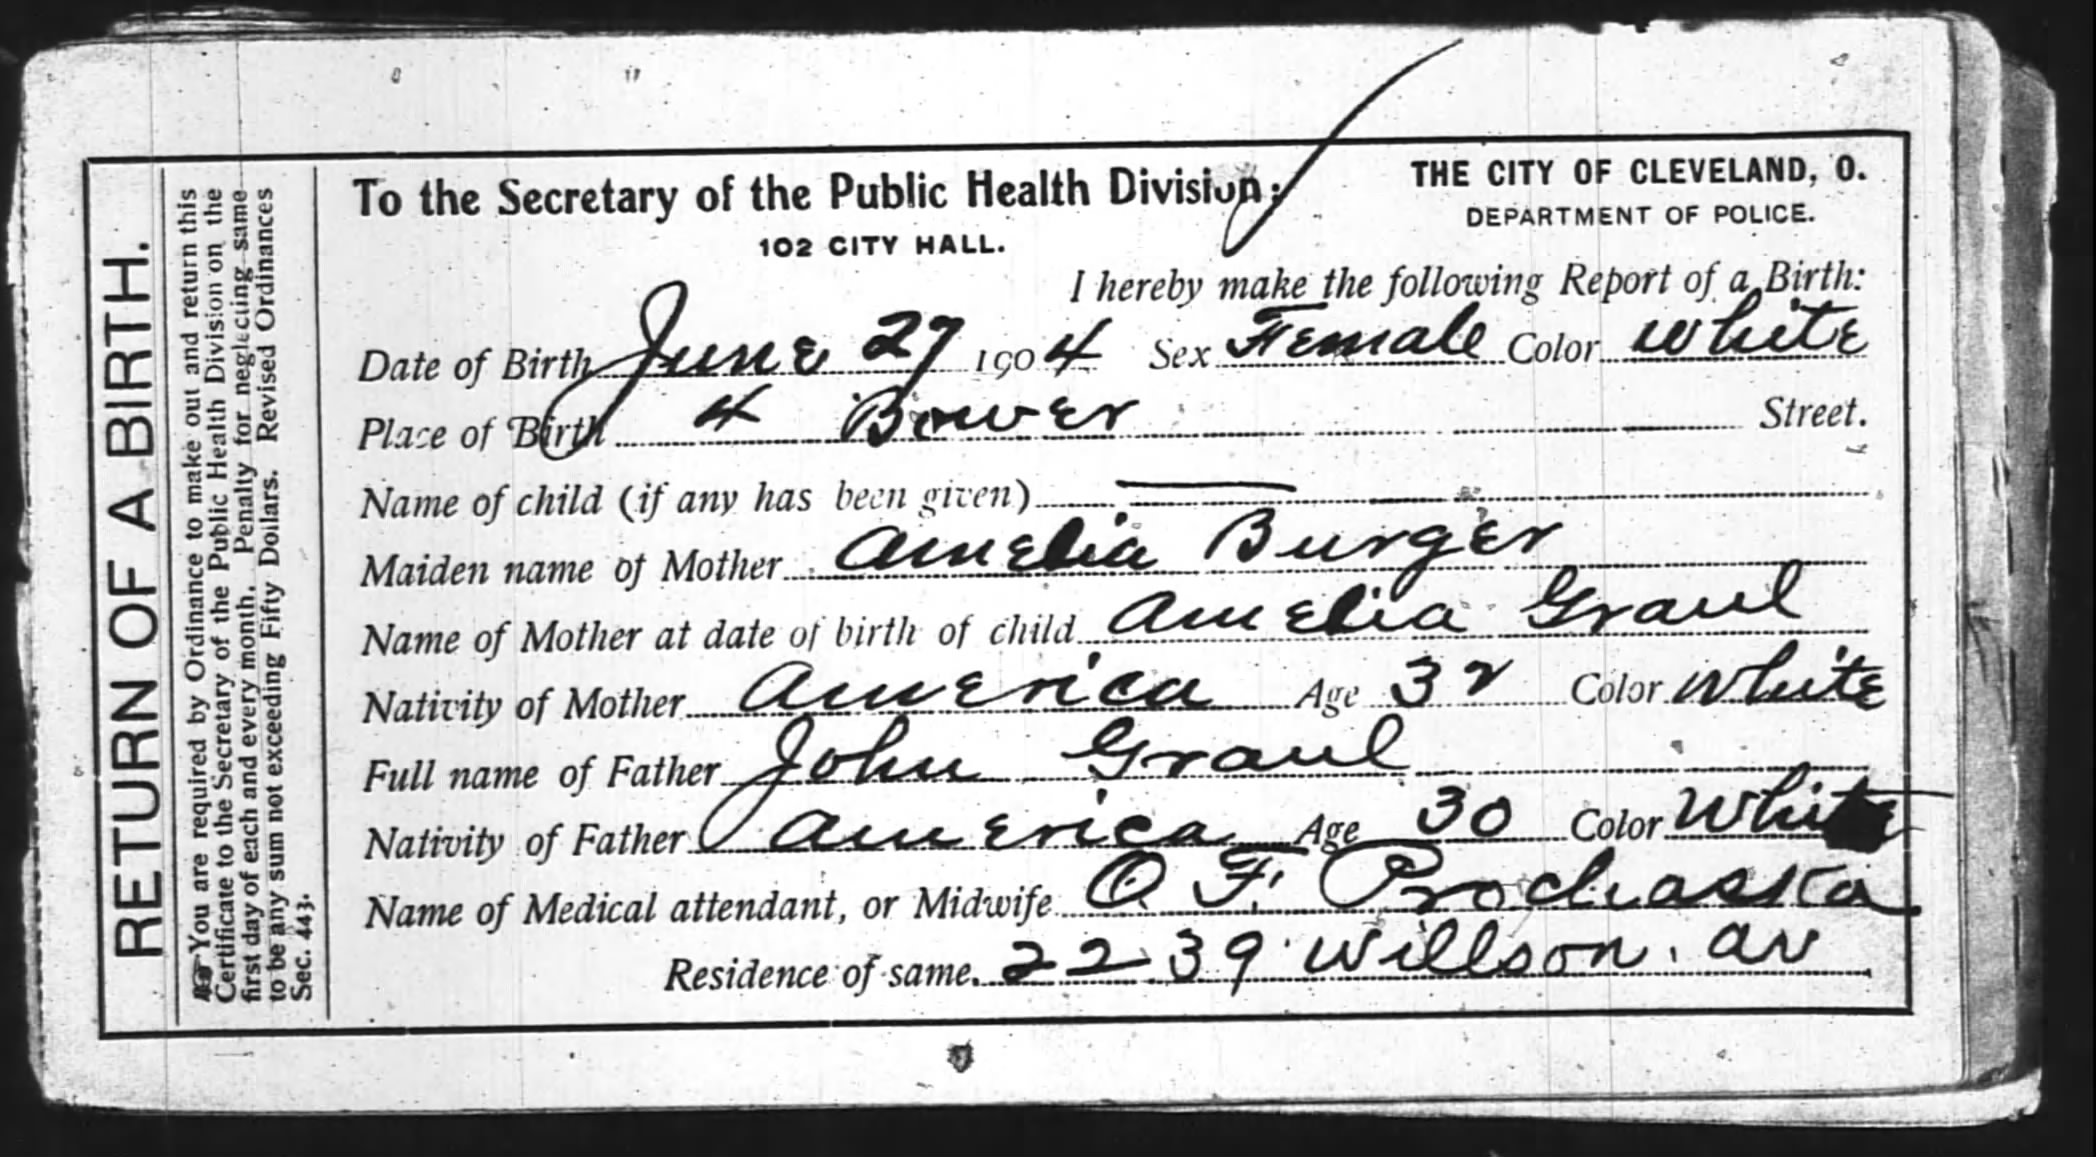 RETURN OF A BIRTH.
☞You are required by Ordinance to make out and return this
Certificate to the Secretary of the Public Health Division on the
first day of each and every month. Penalty for neglecting same
to be any sum not exceeding Fifty Dollars. Revised Ordinances
Sec. 443.
To the Secretary of the Public Health Division: THE CITY OF CLEVELAND, O.
102 CITY HALL. DEPARTMENT OF POLICE.
I hereby make the following Report of a Birth:
Date of Birth June 27 1904 Sex Female Color White
Place of Birth 4 Bower Street.
Name of child (if any has been given) —
Maiden name of Mother Amelia Burger
Name of Mother at date of birth of child Amelia Graul
Nativity of Mother America Age 32 Color White
Full name of Father John Graul
Nativity of Father America Age 30 Color White
Name of Medical attendant, or Midwife O. F. Prochaska
Residence of same. 2239 Willson. av